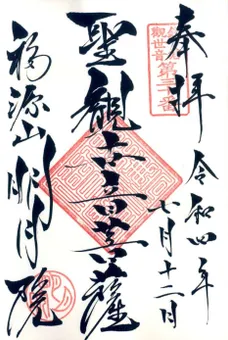 奉拝
第三十番
令和四年
七月十二日
聖観世音菩薩
福源山明月院